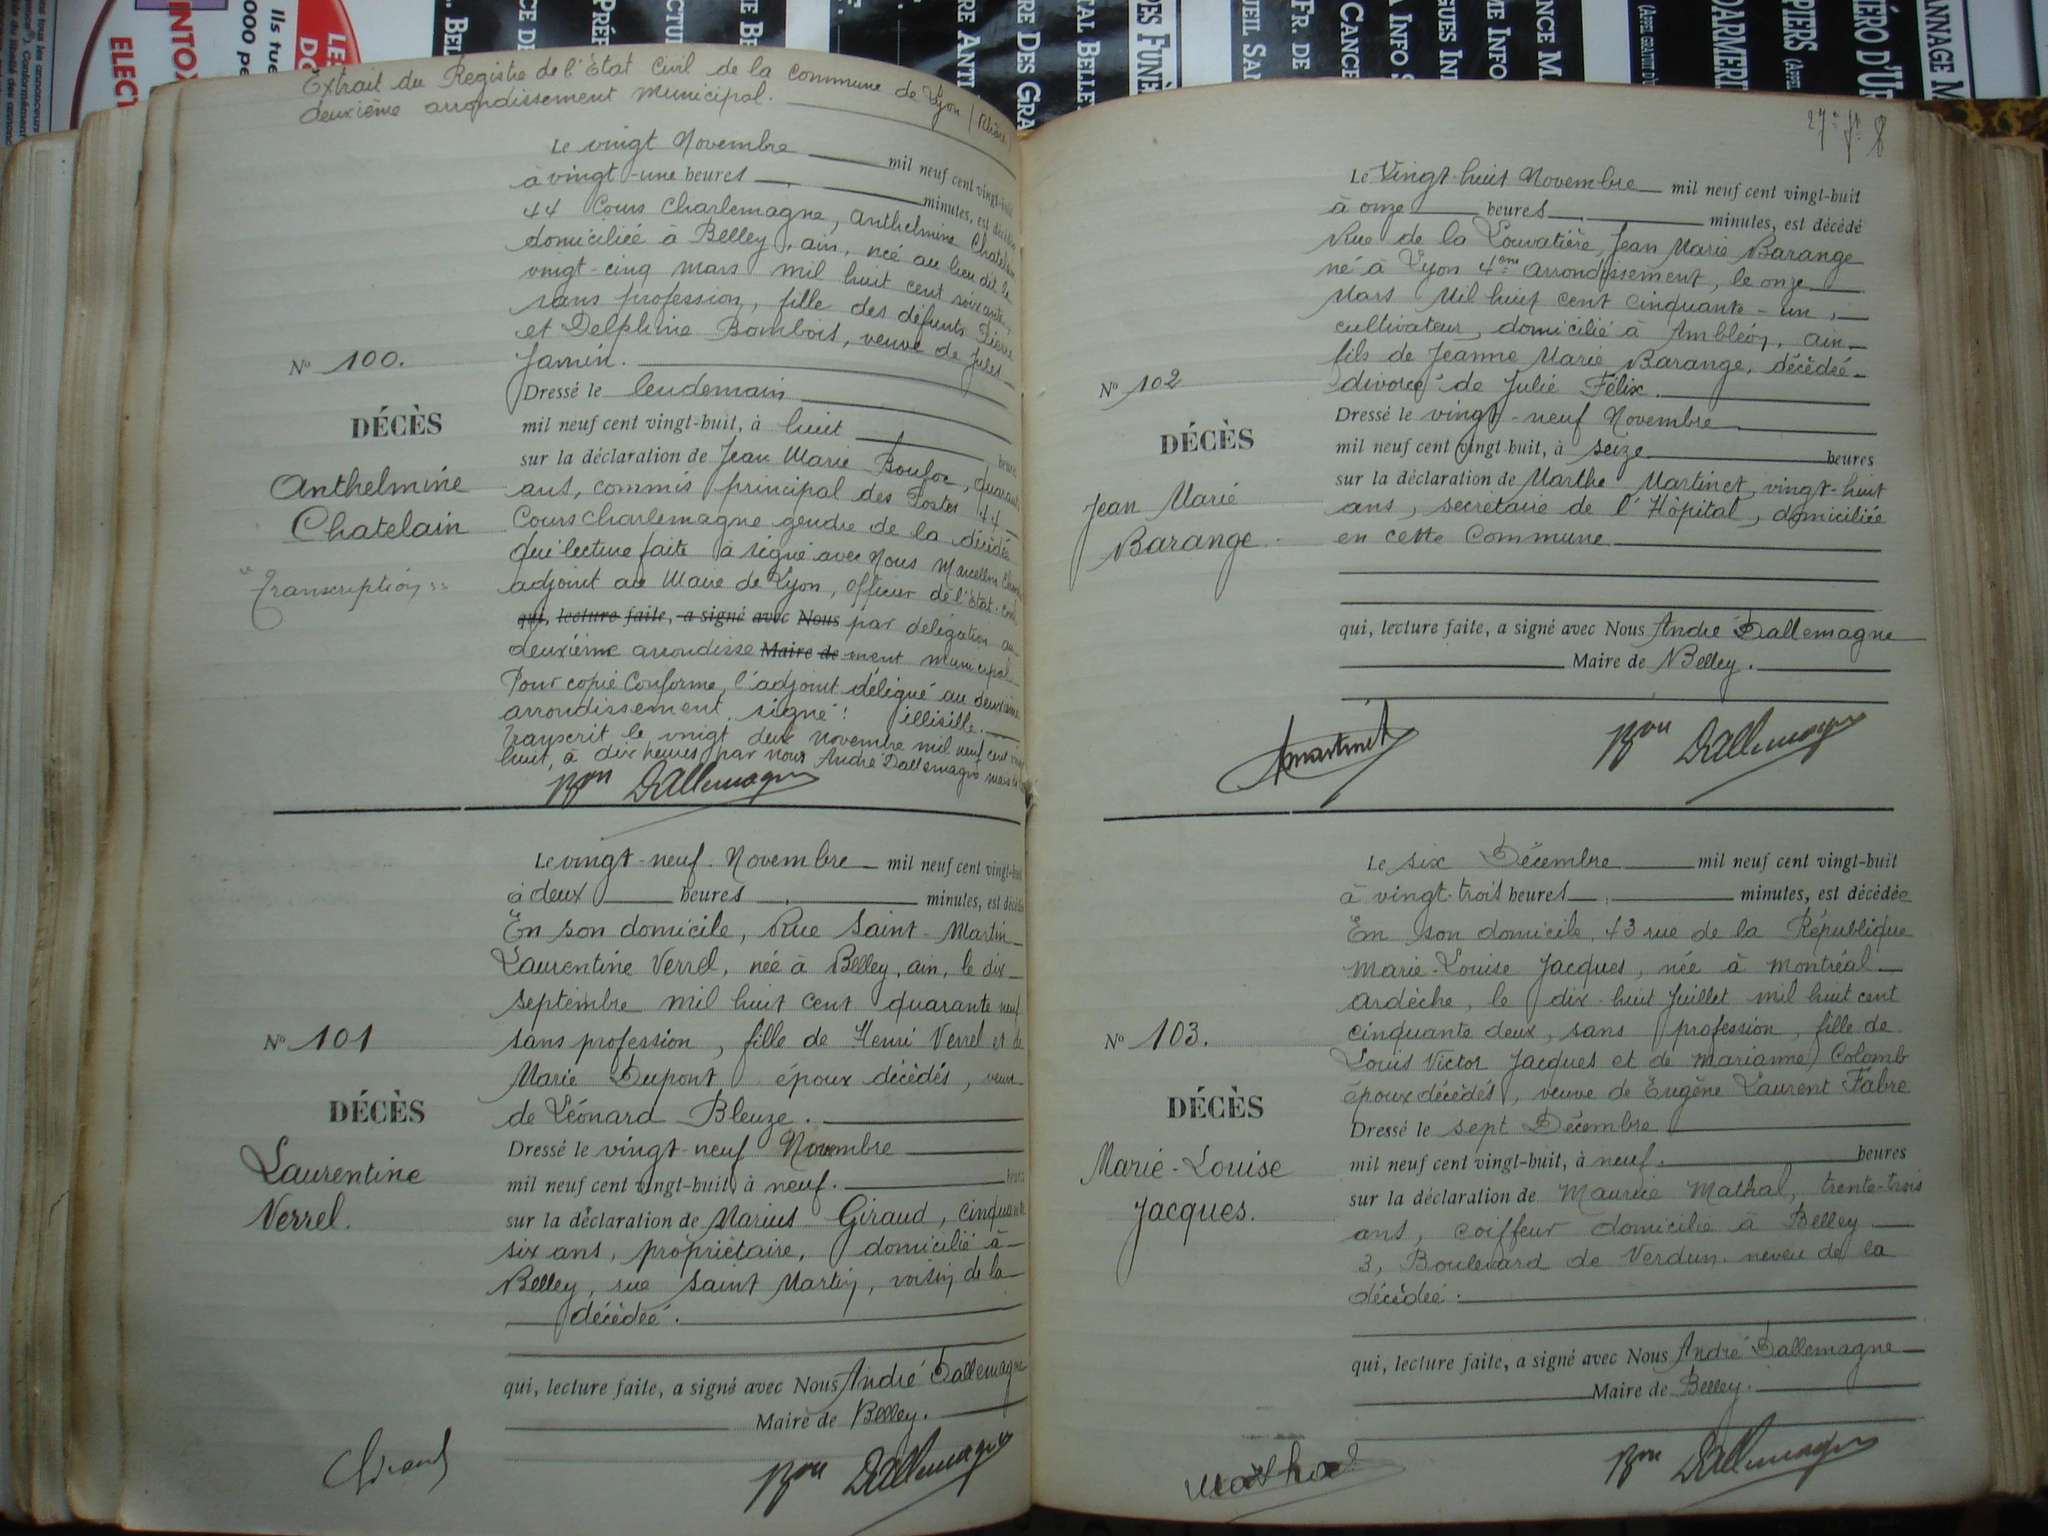 Extrait du Registre de l'Etat Civil de la Commune de Lyon (Rhône)
deuxième arrondissement municipal.
Le vingt Novembre mil neuf cent vingt-huit
à vingt-une heures minutes, est décédée
44 Cours Charlemagne, Anthelmine Chatelain
domiciliée à Belley, ain, née au lieu dit le
vingt-cinq mars mil huit cent soixante,
sans profession, fille des défunts Pierre
et Delphine Bombois, veuve de Jules
Jamin.
Nº 100.
DÉCÈS
Anthelmine
Chatelain
"Transcription"
Dressé le lendemain
mil neuf cent vingt-huit, à huit heures
sur la déclaration de Jean Marie Bouloc, quarante
ans, commis principal des Postes 44
Cours Charlemagne gendre de la décédée
Qui lecture faite à signé avec Nous Marcellin
adjoint au Maire de Lyon, Officier de l'Etat-Civil
qui, lecture faite, a signé avec Nous par délégation au
deuxième arrondisse Maire de ment municipal
Pour copie Conforme, l'adjoint délégué au deuxième
arrondissement, signé: illisible.
Transcrit le vingt deux novembre mil neuf cent vingt
huit, à dix heures par nous André Dallemagne maire de
Bon Dallemagne
Le vingt-neuf Novembre mil neuf cent vingt-huit
à deux heures minutes, est décédée
En son domicile, Rue Saint-Martin
Laurentine Verrel, née à Belley, ain, le dix
septembre mil huit cent quarante neuf
sans profession, fille de Henri Verrel et de
Marie Dupont époux décédés, veuve
de Léonard Bleuze.
Nº 101
DÉCÈS
Laurentine
Verrel.
Dressé le vingt-neuf Novembre
mil neuf cent vingt-huit, à neuf. heures
sur la déclaration de Marius Giraud, cinquante
six ans, propriétaire, domicilié à
Belley, rue Saint Martin, voisin de la
décédée.
qui, lecture faite, a signé avec Nous André Dallemagne
Maire de Belley.
Giraud
Bon Dallemagne
27e ft 8
Le Vingt-huit Novembre mil neuf cent vingt-huit
à onze heures minutes, est décédé
Rue de la Louvatière, Jean Marie Barange
né à Lyon 4eme arrondissement, le onze
Mars Mil huit cent cinquante-un,
cultivateur, domicilié à Ambléon, ain,
fils de Jeanne Marie Barange, décédée
divorcé de Julie Félix.
Nº 102
DÉCÈS
Jean Marie
Barange.
Dressé le vingt-neuf Novembre
mil neuf cent vingt-huit, à seize heures
sur la déclaration de Marthe Martinet, vingt-huit
ans, secrétaire de l'Hôpital, domiciliée
en cette Commune
qui, lecture faite, a signé avec Nous André Dallemagne
Maire de Belley.
Martinet
Bon Dallemagne
Le six Décembre mil neuf cent vingt-huit
à vingt-trois heures minutes, est décédée
En son domicile, 43 rue de la République
Marie-Louise Jacques, née à Montréal
Ardèche, le dix-huit Juillet mil huit cent
cinquante deux, sans profession, fille de
Louis Victor Jacques et de Marianne Colomb
époux décédés, veuve de Eugène Laurent Fabre
Nº 103.
DÉCÈS
Marie-Louise
Jacques.
Dressé le sept Décembre
mil neuf cent vingt-huit, à neuf. heures
sur la déclaration de Maurice Mathal, trente-trois
ans, coiffeur domicilié à Belley
3, Boulevard de Verdun neveu de la
décédée.
qui, lecture faite, a signé avec Nous André Dallemagne
Maire de Belley.
Mathal
Bon Dallemagne